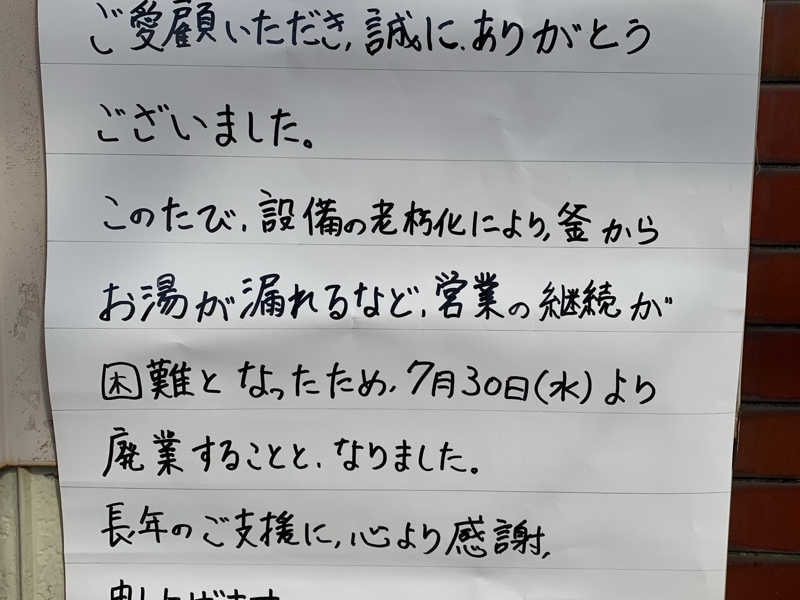 ご愛顧いただき、誠に、ありがとう
ございました。
このたび、設備の老朽化により、釜から
お湯が漏れるなど、営業の継続が
困難となったため、7月30日(水)より
廃業することと、なりました。
長年のご支援に、心より感謝、
申し上げます